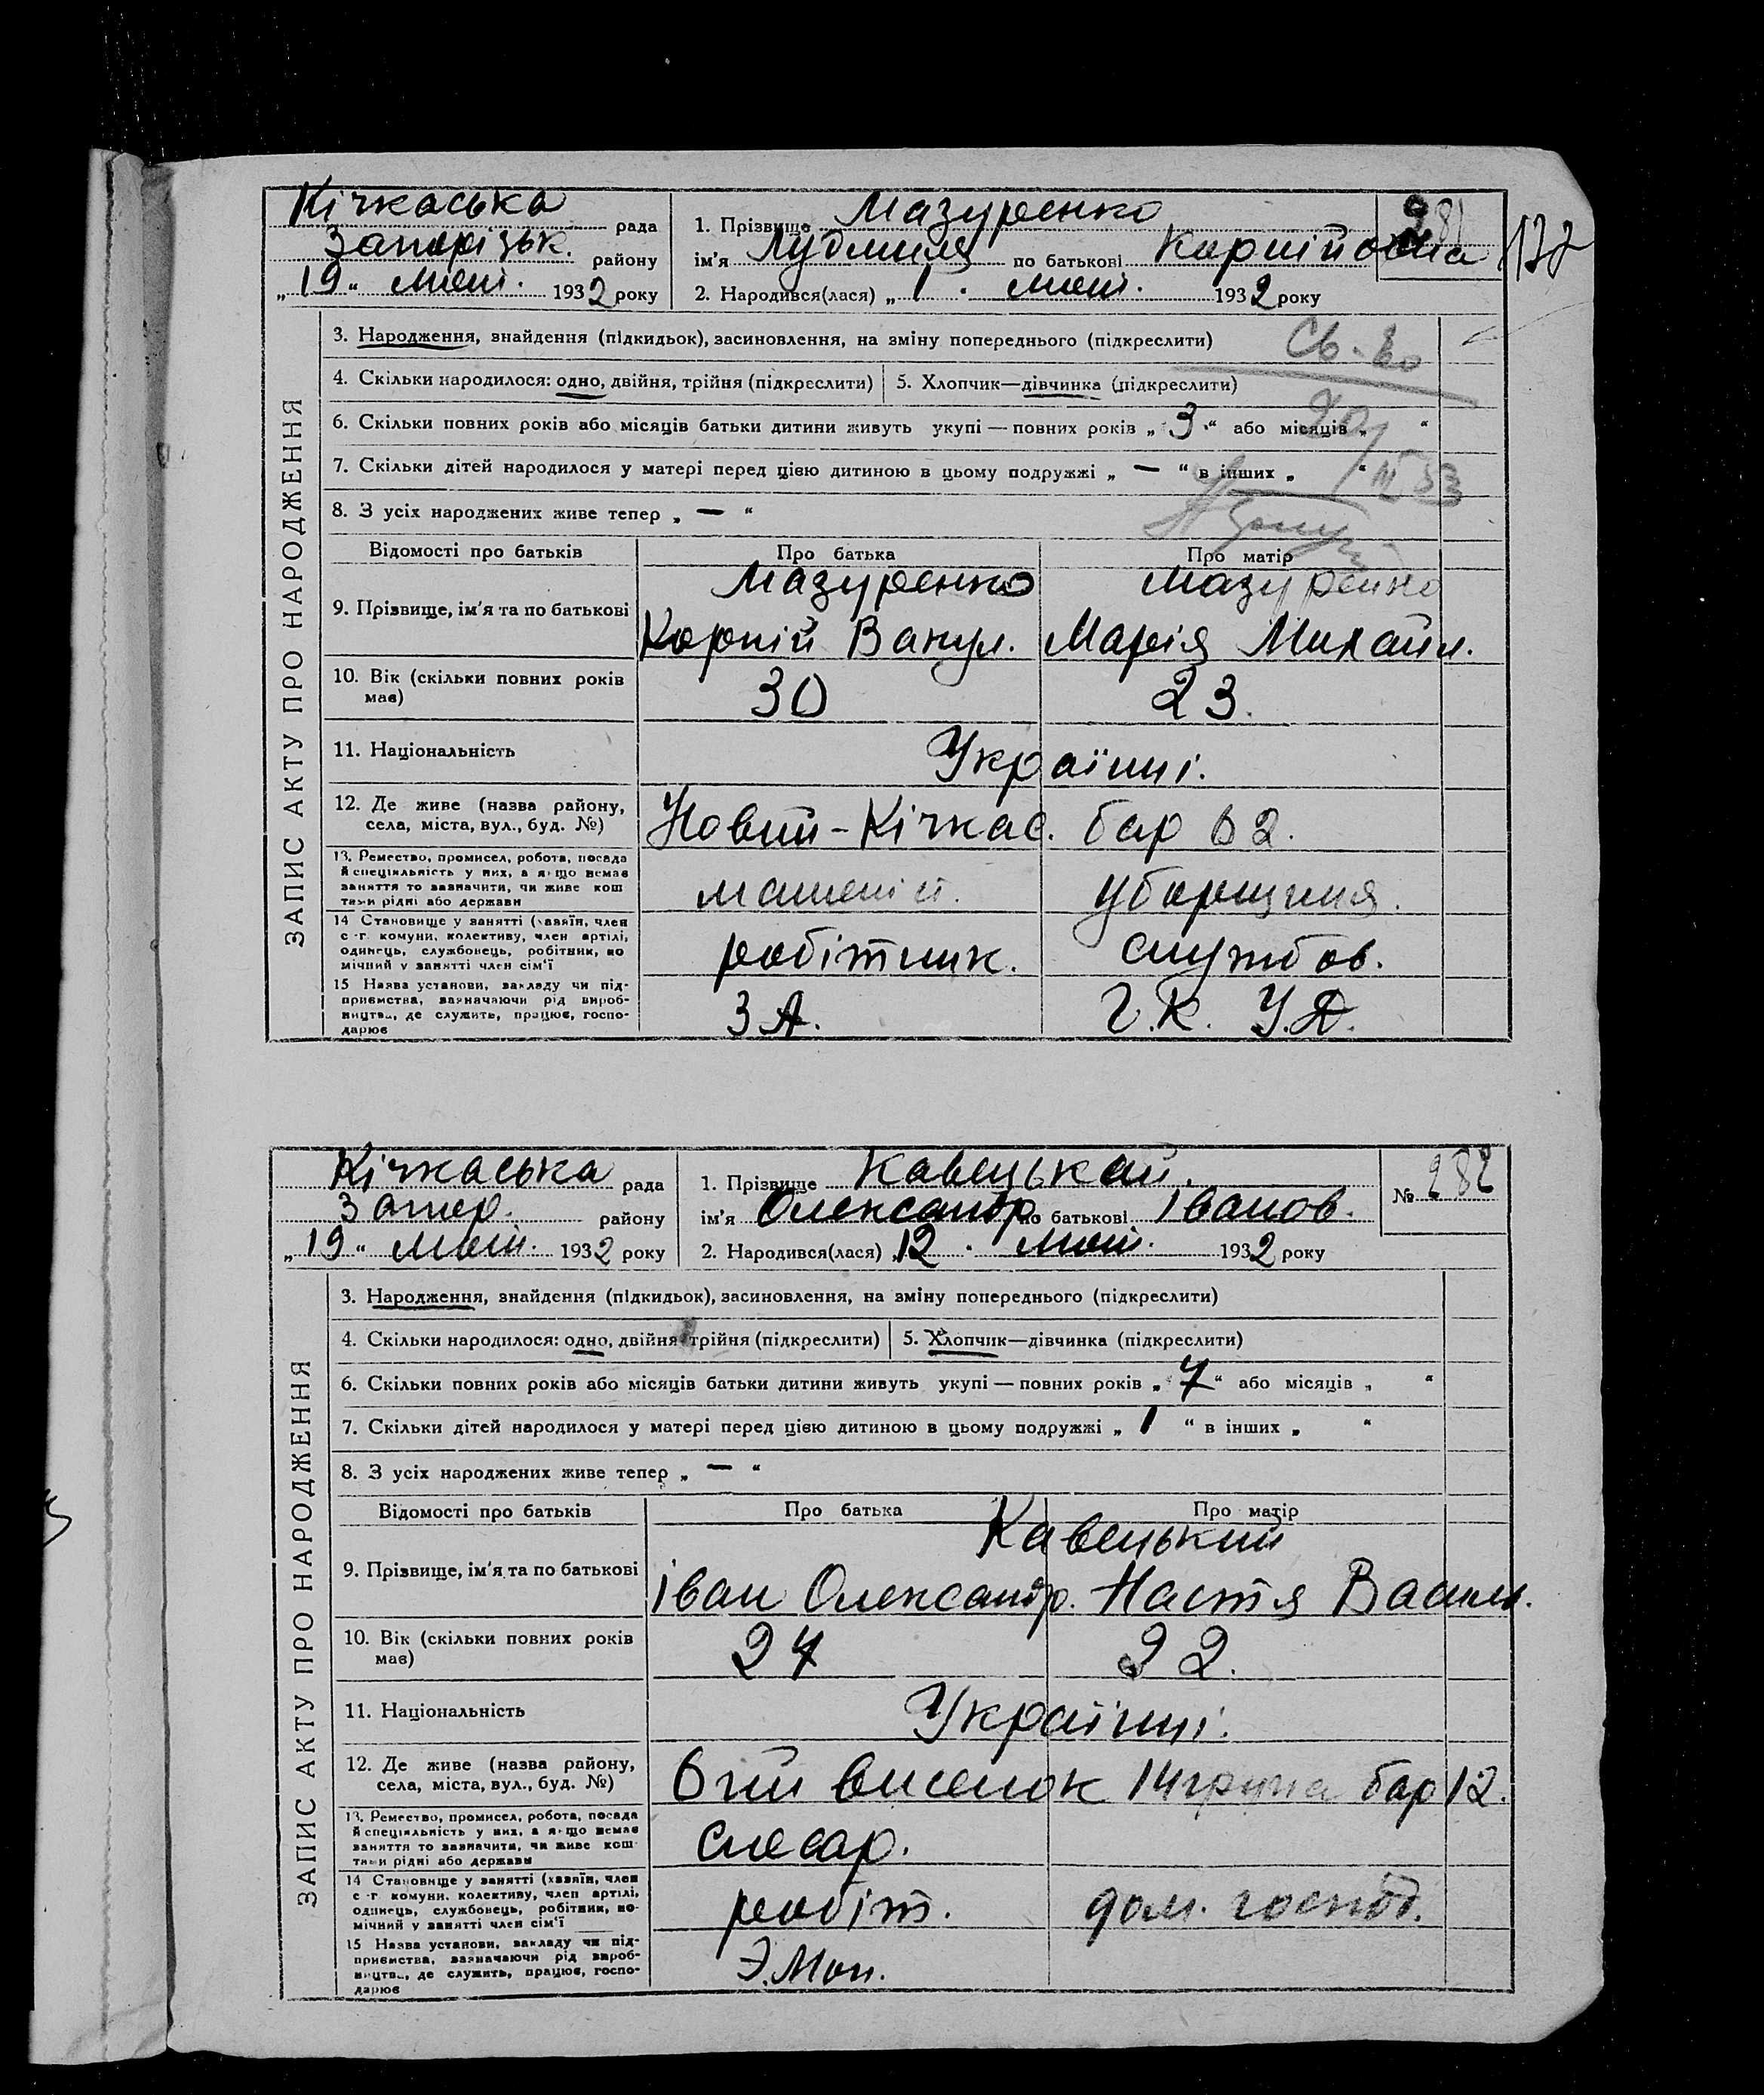 Кічкаська рада
Запорізьк. району
„19“ лют. 1932 року
1. Прізвище Мазуренко
ім'я Лудмиля по батькові Корнійовна
2. Народився(лася) „1. лют. 1932 року
281
137
ЗАПИС АКТУ ПРО НАРОДЖЕННЯ
3. Народження, знайдення (підкидьок), засиновлення, на зміну попереднього (підкреслити)
Св-во
4. Скільки народилося: одно, двійня, трійня (підкреслити) 5. Хлопчик—дівчинка (підкреслити)
20/III 53
6. Скільки повних років або місяців батьки дитини живуть укупі — повних років „3“ або місяців „ “
7. Скільки дітей народилося у матері перед цією дитиною в цьому подружжі „—“ в інших „ “
8. З усіх народжених живе тепер „—“
Відомості про батьків Про батька Про матір
9. Прізвище, ім'я та по батькові
Мазуренко Мазуренко
Корній Вакул. Марія Михайл.
10. Вік (скільки повних років має) 30 23.
11. Національність Українці.
12. Де живе (назва району, села, міста, вул., буд. №)
Новий-Кічкас. бар 62.
13. Ремество, промисел, робота, посада
й спеціяльність у них, а якщо немає
заняття то зазначити, чи живе кош
тами рідні або держави
уборщиця.
14 Становище у занятті (хазяїн, член
с-г. комуни, колективу, член артілі,
одинець, службовець, робітник, по
мічний у занятті член сім'ї
робітник. службов.
15 Назва установи, закладу чи під-
приємства, зазначаючи рід вироб-
ництва, де служить, працює, госпо-
дарює
З А. Г. К. У. Д.
Кічкаська рада
Запор. району
„19“ лют. 1932 року
1. Прізвище Кавецькай.
ім'я Олександр по батькові Іванов.
2. Народився(лася) „12. лют. 1932 року
№ 282
ЗАПИС АКТУ ПРО НАРОДЖЕННЯ
3. Народження, знайдення (підкидьок), засиновлення, на зміну попереднього (підкреслити)
4. Скільки народилося: одно, двійня, трійня (підкреслити) 5. Хлопчик—дівчинка (підкреслити)
6. Скільки повних років або місяців батьки дитини живуть укупі — повних років „7“ або місяців „ “
7. Скільки дітей народилося у матері перед цією дитиною в цьому подружжі „1“ в інших „ “
8. З усіх народжених живе тепер „—“
Відомості про батьків Про батька Про матір
9. Прізвище, ім'я та по батькові
Кавецький
Іван Олександр. Настя Васил.
10. Вік (скільки повних років має) 27 22.
11. Національність Українці.
12. Де живе (назва району, села, міста, вул., буд. №)
6тий виселок 14 група бар 12.
13. Ремество, промисел, робота, посада
й спеціяльність у них, а якщо немає
заняття то зазначити, чи живе кош-
тами рідні або держави
слесар.
14 Становище у занятті (хазяїн, член
с-г. комуни, колективу, член артілі,
одинець, службовець, робітник, по-
мічний у занятті член сім'ї
робіт. дом. господ.
15 Назва установи, закладу чи під-
приємства, зазначаючи рід вироб-
ництва, де служить, працює, госпо-
дарює
Э. Мон.